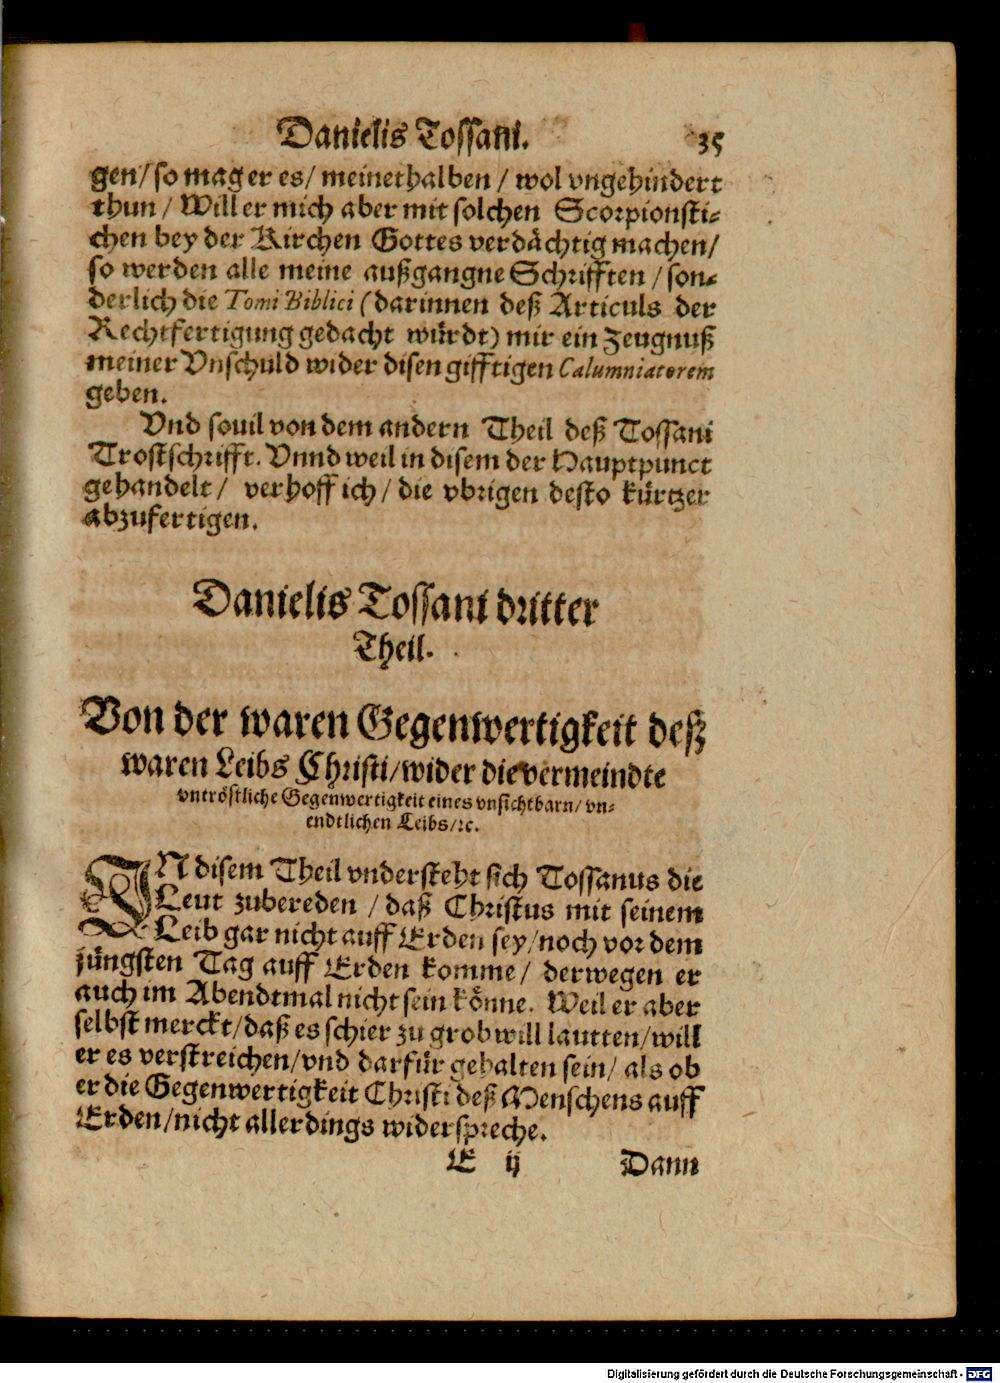 Danielis Tossani. 35
gen/ so mag er es/ meinethalben / wol vngehindert
thun / Will er mich aber mit solchen Scorpionsti-
chen bey der Kirchen Gottes verdächtig machen/
so werden alle meine außgangne Schrifften / son-
derlich die Tomi Biblici (darinnen deß Articuls der
Rechtfertigung gedacht würdt) mir ein Zeugnuß
meiner Vnschuld wider disen gifftigen Calumniatorem
geben.
Vnd souil von dem andern Theil deß Tossani
Trostschrifft. Vnnd weil in disem der Hauptpunct
gehandelt / verhoff ich / die vbrigen desto kürtzer
abzufertigen.
Danielis Tossani dritter
Theil.
Von der waren Gegenwertigkeit deß
waren Leibs Christi/ wider die vermeindte
vntröstliche Gegenwertigkeit eines vnsichtbarn/ vn-
endtlichen Leibs/ ꝛc.
IN disem Theil vndersteht sich Tossanus die
Leut zubereden / daß Christus mit seinem
Leib gar nicht auff Erden sey/ noch vor dem
jüngsten Tag auff Erden komme/ derwegen er
auch im Abendtmal nicht sein könne. Weil er aber
selbst merckt/ daß es schier zu grob will lautten/ will
er es verstreichen/ vnd darfür gehalten sein/ als ob
er die Gegenwertigkeit Christi deß Menschens auff
Erden/ nicht allerdings widerspreche.
E ij Dann
Digitalisierung gefördert durch die Deutsche Forschungsgemeinschaft - DFG